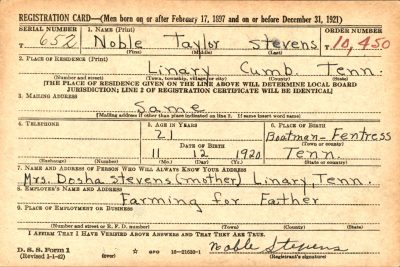 REGISTRATION CARD—(Men born on or after February 17, 1897 and on or before December 31, 1921)
SERIAL NUMBER 1. NAME (Print) ORDER NUMBER
T 652 Noble Taylor Stevens T10,450
(First) (Middle) (Last)
2. PLACE OF RESIDENCE (Print)
Linary Cumb. Tenn.
(Number and street) (Town, township, village, or city) (County) (State)
[THE PLACE OF RESIDENCE GIVEN ON THE LINE ABOVE WILL DETERMINE LOCAL BOARD
JURISDICTION; LINE 2 OF REGISTRATION CERTIFICATE WILL BE IDENTICAL]
3. MAILING ADDRESS
Same
[Mailing address if other than place indicated on line 2. If same insert word same]
4. TELEPHONE 5. AGE IN YEARS 6. PLACE OF BIRTH
21 Boatman-Fentress
DATE OF BIRTH (Town or county)
11 12 1920 Tenn.
(Exchange) (Number) (Mo.) (Day) (Yr.) (State or country)
7. NAME AND ADDRESS OF PERSON WHO WILL ALWAYS KNOW YOUR ADDRESS
Mrs. Dosha Stevens (mother) Linary, Tenn.
8. EMPLOYER'S NAME AND ADDRESS
Farming for Father
9. PLACE OF EMPLOYMENT OR BUSINESS
(Number and street or R. F. D. number) (Town) (County) (State)
I AFFIRM THAT I HAVE VERIFIED ABOVE ANSWERS AND THAT THEY ARE TRUE.
D. S. S. Form 1 Noble Stevens
(Revised 1-1-42) (over) ☆ GPO 16-21630-1 (Registrant's signature)